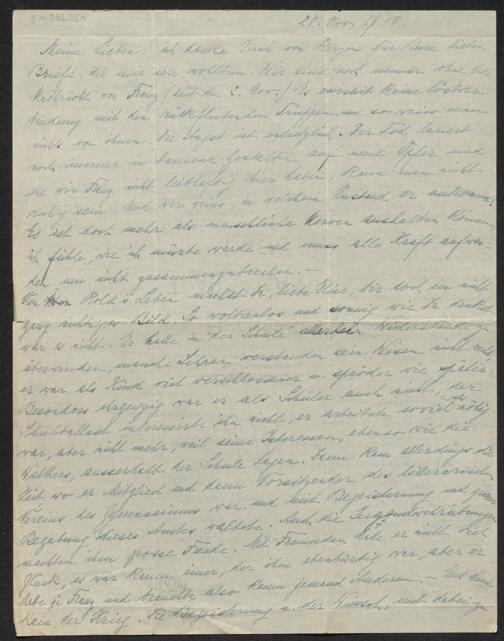 28. Nov. 1918.
Meine Lieben, ich danke Euch von Herzen für Eure lieben
Briefe, die mir sehr wohltun. Wir sind noch immer ohne jede
Nachricht von Franz (seit den 2. Nov.) Es existirt keine Postver-
bindung mit den rückflutenden Truppen und so weiss man
nichts von ihnen. Die Angst ist unerträglich. Der Tod lauert
noch immer in tausend Gestalten auf neue Opfer und
ehe wir Franz nicht leibhaftig hier haben, kann man nicht
ruhig sein. Und wer weiss, in welchem Zustand er ankommt.
Es ist doch mehr als menschliche Nerven aushalten können,
ich fühle, wie ich mürbe werde und muss alle Kraft aufwen-
den um nicht zusammenzubrechen. —
Von Leben machst Du, liebe , Dir wol ein nicht
ganz richtiges Bild. So wolkenlos und sonnig wie Du denkst
war es nicht. Er hatte in der Schule allerlei Widerstände zu
überwinden, manche Lehrer verstanden sein Wesen nicht recht
er war als Kind viel verschlossener u. spröder wie später.
Besonders ehrgeizig war er als Schüler auch nicht, der
Schulballast interessirte ihn nicht, er arbeitete soviel als nötig
war, aber nicht mehr, weil seine Interessen, ebenso wie die
Walthers, ausserhalb der Schule lagen. Dann kam allerdings die
Zeit wo er Mitglied und dann Vorsitzender des litterarischen
Vereins des Gymnasiums war, und mit Begeisterung und
Begabung dieses Amtes waltete. Auch die
machten ihm grosse Freude. Mit Freunden hatte er nicht viel
Glück, es war kaum einer, der ihm ebenbürtig war, aber er
hatte ja Franz und brauchte also kaum jemand Anderen. — Und dann
kam der Krieg. Die Begeisterung u. der Wunsch, mit dabei zu